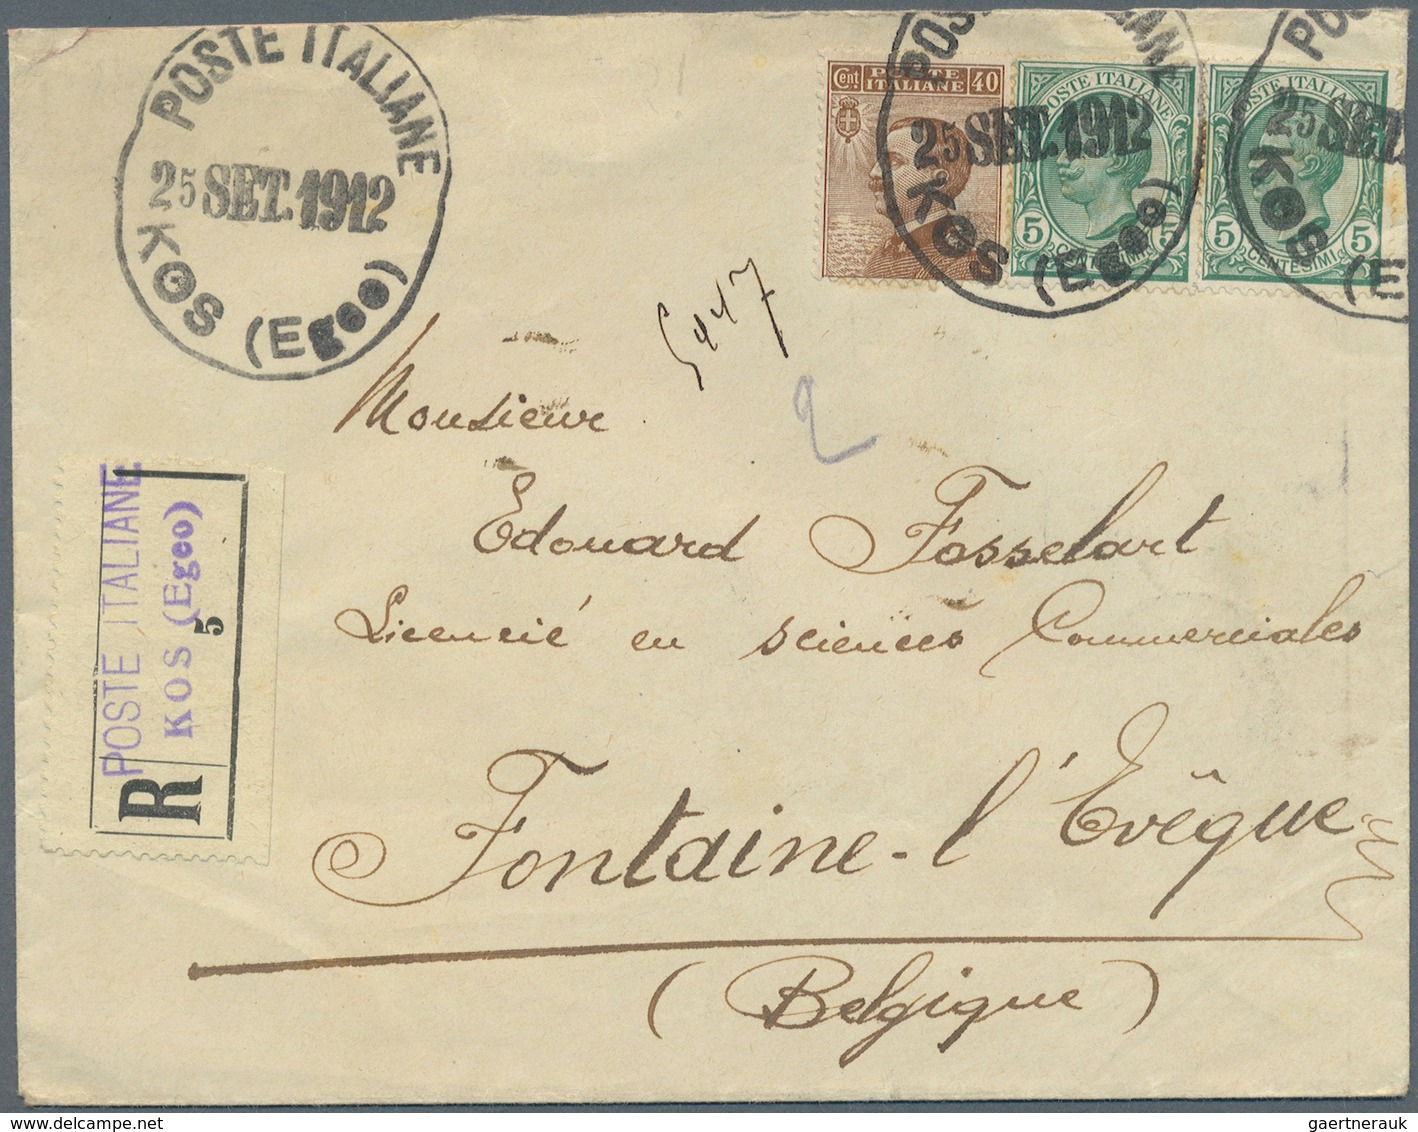 POSTE ITALIANE
25 SET. 1912
KOS (Egeo)
Cent. POSTE ITALIANE 40
POSTE ITALIANE
5 CENTESIMI 5
POSTE ITALIANE
5 CENTESIMI 5
25 SET. 1912
KOS (Egeo)
25 SET.
KOS (E
2
Monsieur
Edouard Fosselart
Licencié en sciences Commerciales
Fontaine-l'Evêque
(Belgique)
R
POSTE ITALIANE
KOS (Egeo)
5
gaertnerauk